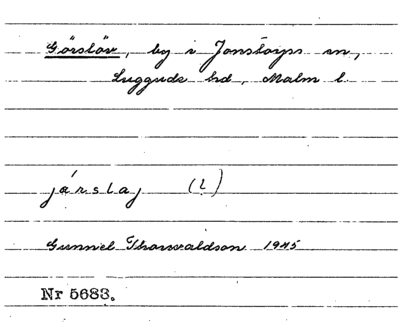 Görslöv, by i Jonstorps sn,
Luggude hd, Malm l.
járslaj (l)
Gunnel Thorvaldson 1945
Nr 5683.